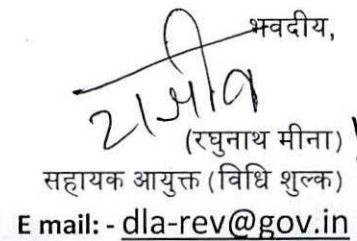 भवदीय,
राजीव
(रघुनाथ मीना)
सहायक आयुक्त (विधि शुल्क)
E mail: - dla-rev@gov.in